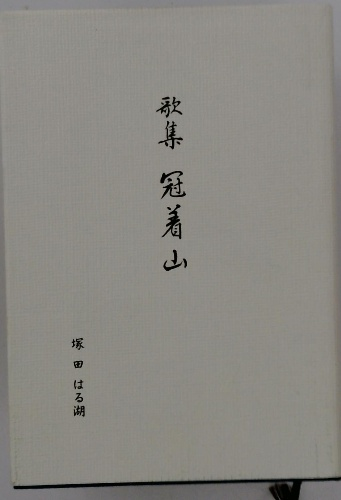 歌集 冠着山
塚田はる湖